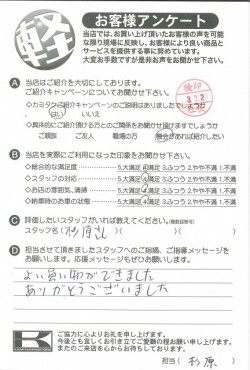 軽
お客様アンケート
当店では、お買い上げ頂いたお客様の声を可能
な限り現場に反映し、お客様により良い商品と
サービスを提供する事に努めています。
大変お手数ですが是非お声をお聞かせ下さい。
A 当店はご紹介を大切にしております。
ご紹介キャンペーンについてお聞かせ下さい。
◇カミタケご紹介キャンペーンのご説明はありましたでしょうか
はい いいえ
◇具体的にご紹介頂ける方とのご関係をお聞かせ頂けますでしょうか
ご親族 ご友人 職場の方 機会があれば紹介したい
B 当店を実際にご利用になった印象をお聞かせ下さい。
◇総合的な満足度 5.大満足 4.満足 3.ふつう 2.やや不満 1.不満
◇スタッフの対応 5.大満足 4.満足 3.ふつう 2.やや不満 1.不満
◇お店の雰囲気、清掃 5.大満足 4.満足 3.ふつう 2.やや不満 1.不満
◇納車時のお車の状態 5.大満足 4.満足 3.ふつう 2.やや不満 1.不満
C 評価したいスタッフがいれば教えてください。(複数回答可)
スタッフ名( 杉原さん )
D 担当させて頂きましたスタッフへのご指摘、ご指導メッセージを
お願いします。応援メッセージもぜひお願いします。
よい買い物ができました
ありがとうございました
ご協力に心よりお礼を申し上げます。
今後とも宜しくお引き立てご愛顧の程お願い申し上げます。
またのご来店を心からお待ちしております。
担当( 杉原 )